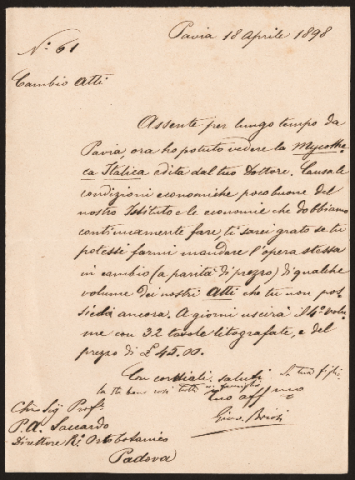 Pavia 18 Aprile 1898
N.° 61
Cambio Atti
Assente per lungo tempo da
Pavia, ora ho potuto vedere la Mycothe
ca Italica edita dal tuo Dottore. Causa le
condizioni economiche poco buone del
nostro Istituto e le economie che dobbiamo
continuamente fare, ti sarei grato se tu
potessi farmi mandare l'opera stessa
in cambio (a parità di prezzo) di qualche
volume dei nostri Atti che tu non pos
siedi ancora. A giorni uscirà il 4° volu
me con 32 tavole litografate, e del
prezzo di £ 45.00.
Con cordiali saluti
tuo affmo
Giov. Briosi
Chio Sig. Prof.
P. A. Saccardo
Direttore R.° Orto botanico
Padova